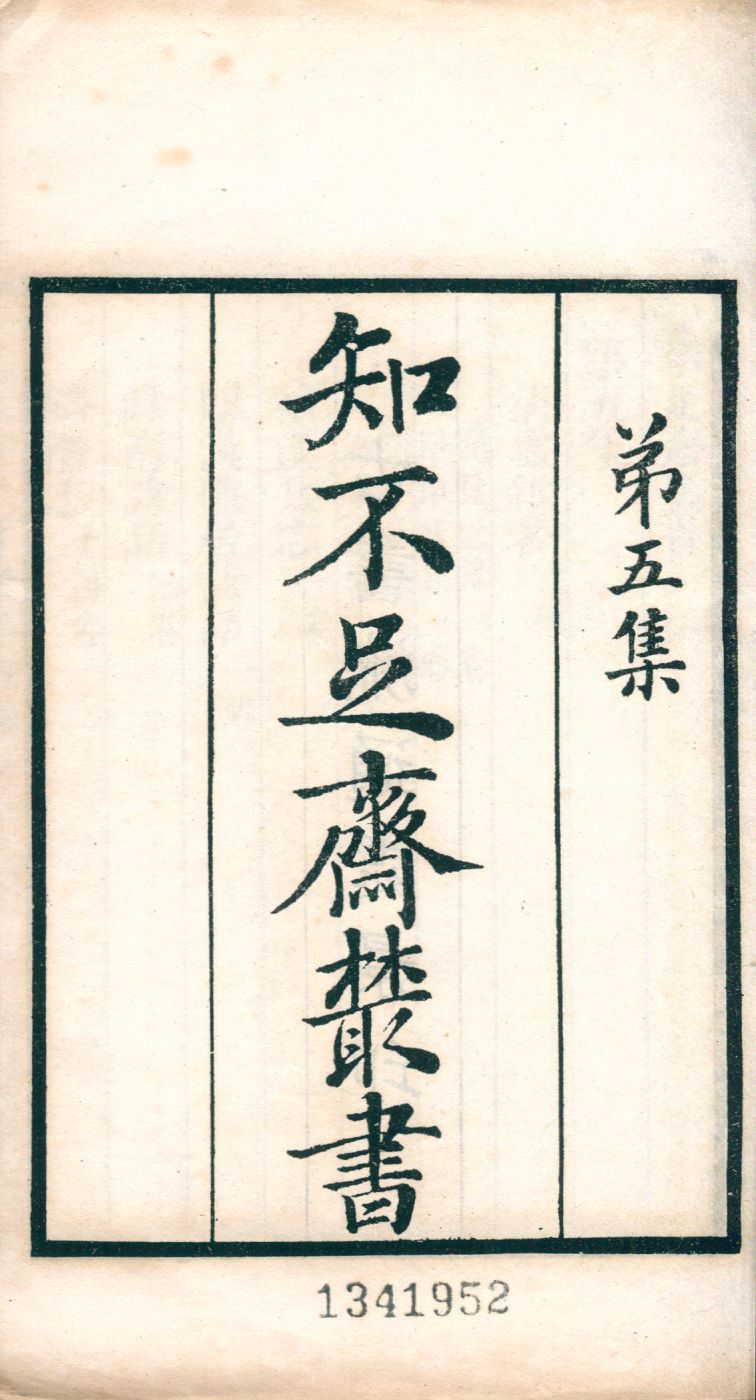 弟五集
知不足齋叢書
1341952